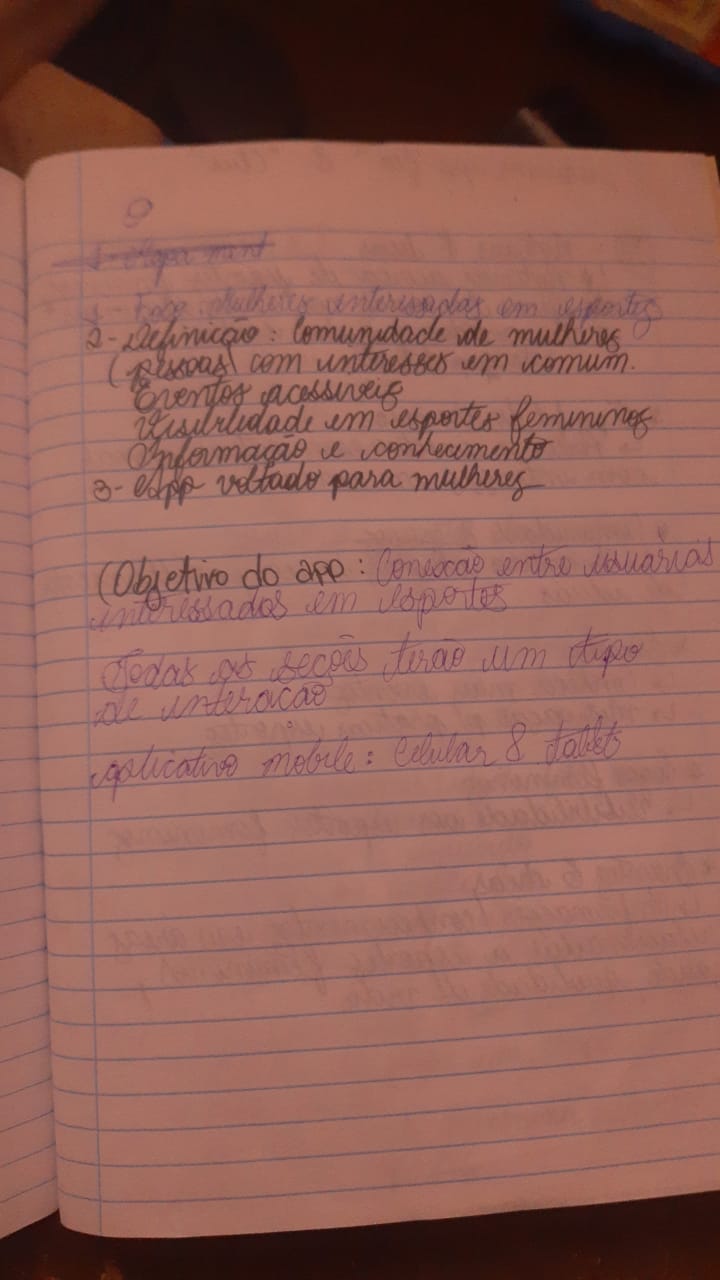 9
1 - Mapa ment
1 - Foco Mulheres interessadas em esportes
2 - Definição: Comunidade de mulheres
(pessoas) com interesses em comum.
Eventos acessiveis
Visibilidade em esportes femininos
Informação e conhecimento
3 - App voltado para mulheres
(Objetivo do app: Conexão entre usuárias
interessados em esportes
Todas as seções terão um tipo
de interação
aplicativo mobile: Celular & tablets